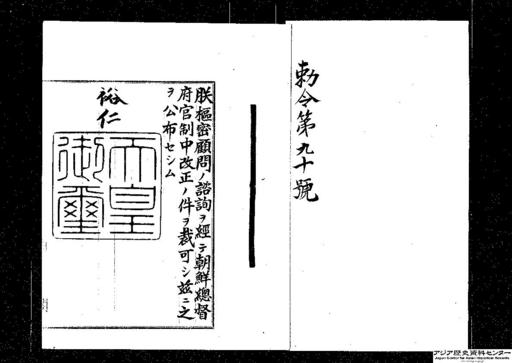 勅令第九十號
朕樞密顧問ノ諮詢ヲ經テ朝鮮總督
府官制中改正ノ件ヲ裁可シ茲ニ之
ヲ公布セシム
裕仁
天皇
御璽
アジア歴史資料センター
Japan Center for Asian Historical Records